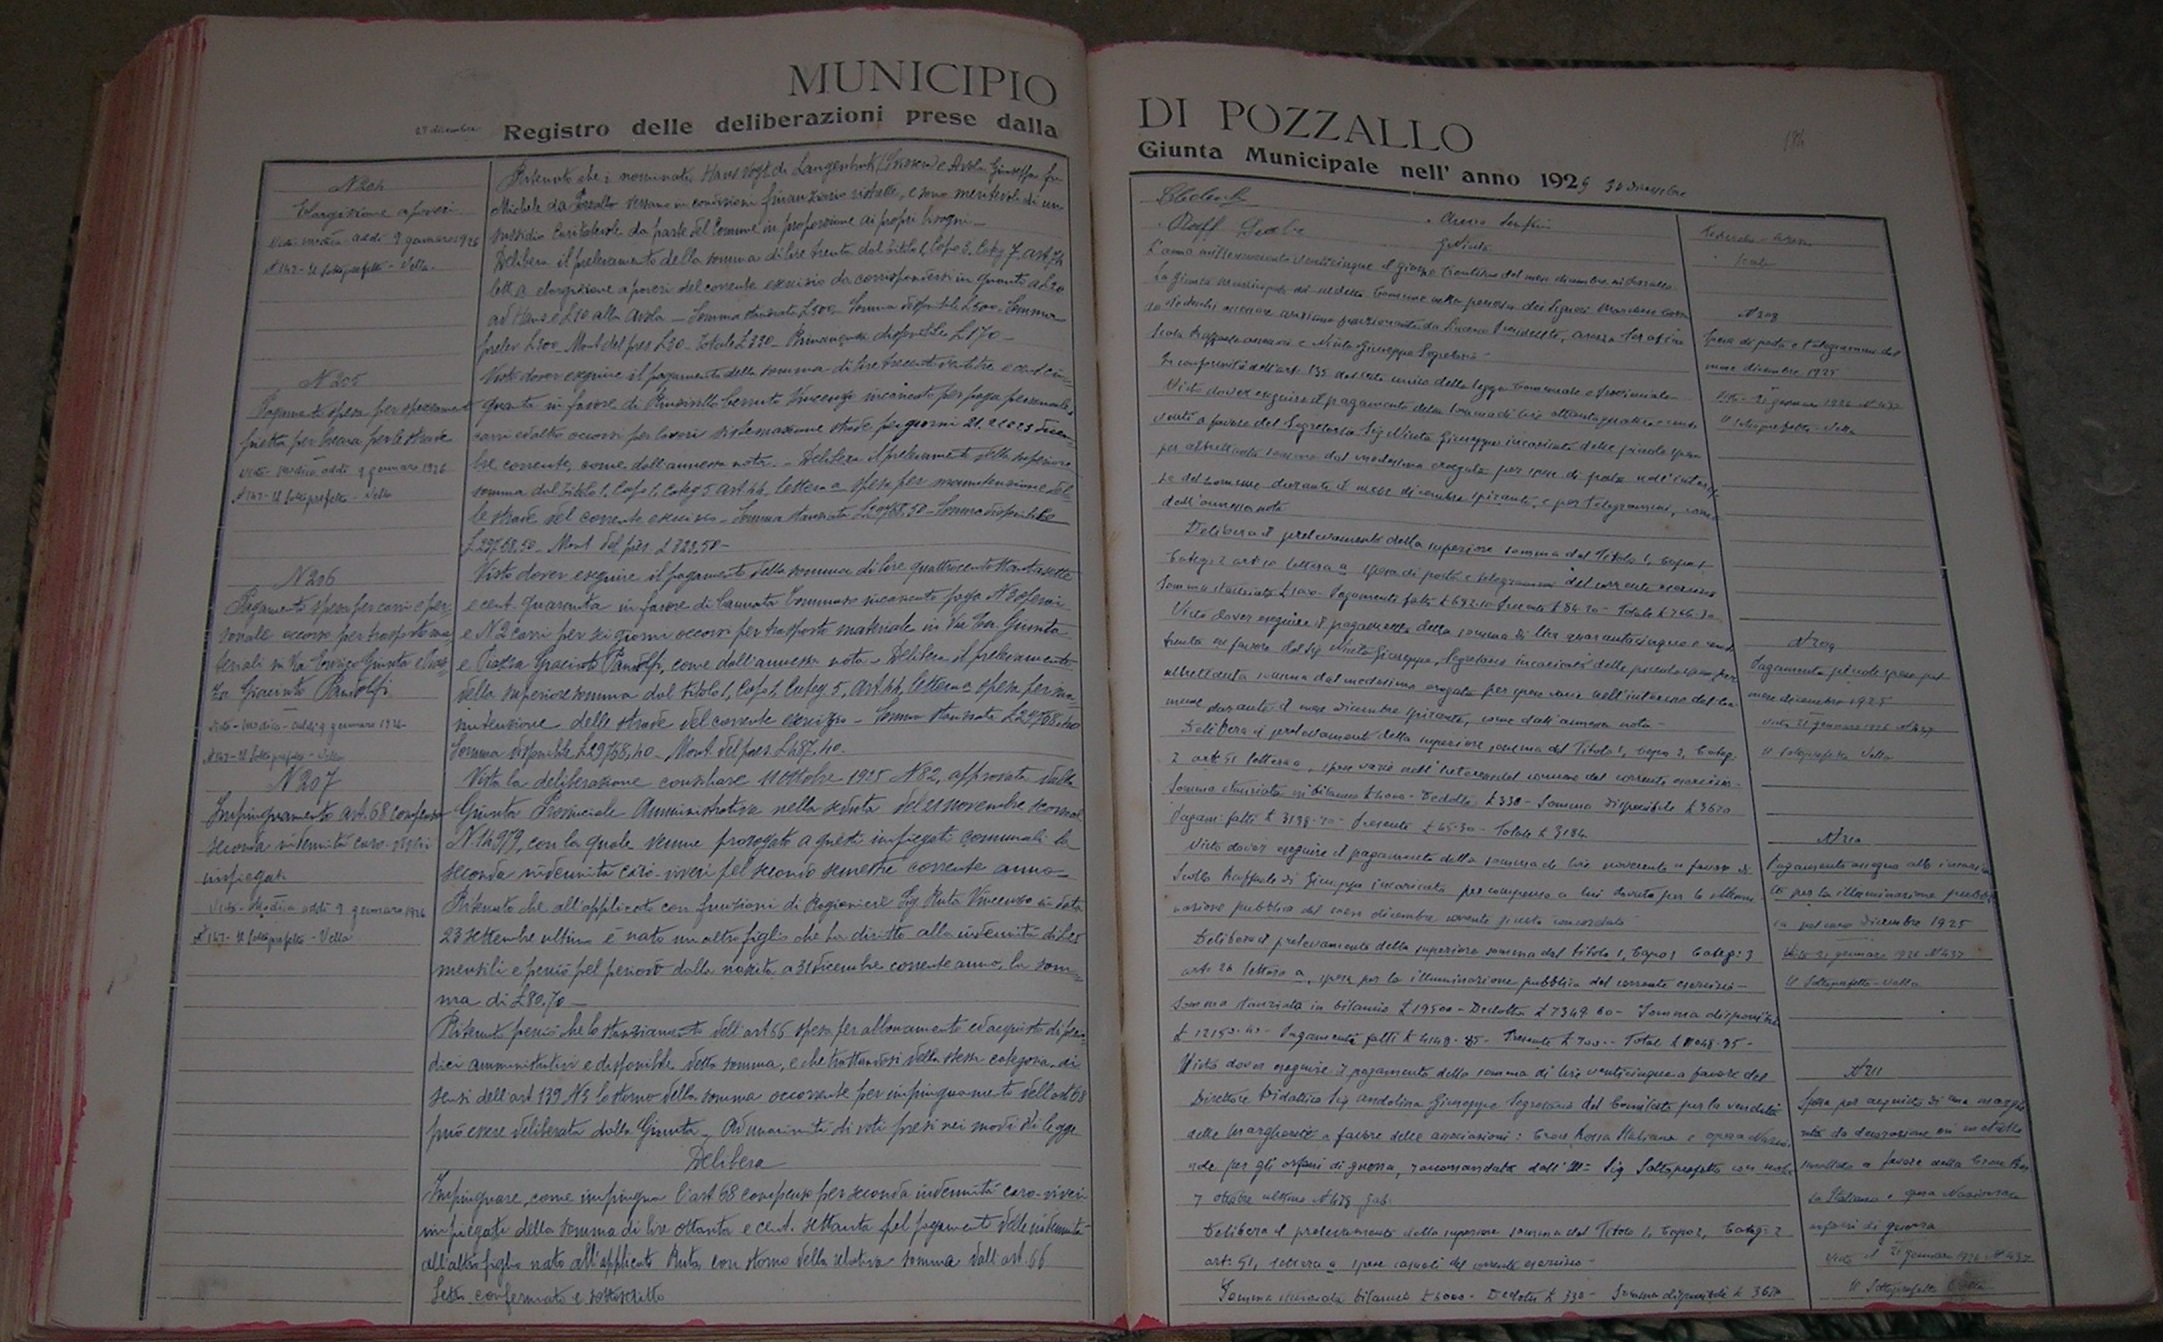 MUNICIPIO
27 dicembre Registro delle deliberazioni prese dalla
N 204
Elargizione a poveri
Visto Modica addì 9 gennaro 1926
N 147 - Il Sottoprefetto - Vella
N 205
Pagamento spesa per
per le strade
Visto Modica addì 9 gennaro 1926
N 147 - Il Sottoprefetto - Vella
N 206
Pagamento spesa per carri e per-
sonale occorso per trasporto ma
teriali in Via Enrico Giunta e Piaz
za Giacinto Pandolfi
Visto - Modica - addì 9 gennaro 1926
N 147 - Il Sottoprefetto - Vella
N 207
Impinguamento art. 68 compenso
seconda indennità caro-viveri
impiegati
Visto - Modica addì 9 gennaro 1926
N 147 - Il Sottoprefetto - Vella
Ritenuto che i nominati Hans Vogt di e Avola Giuseppa fu
Michele da Pozzallo versano in condizioni finanziarie ristrette, e sono meritevoli di un
sussidio caritatevole da parte del Comune in proporzione ai propri bisogni -
Delibera il prelevamento della somma di lire trenta dal titolo 1, Capo 6, Categ 7, art 74
lett a elargizione a poveri del corrente esercizio da corrispondersi in quanto a L 20
ad Hans e L 10 alla Avola - Somma stanziata L 500 - Somma disponibile L 500 - Somma
prelev L 300 - Mont del pres L 30 - Totale L 330 - Rimanenza disponibile L 170 -
Visto dover eseguire il pagamento della somma di lire trecento ventitre e cent cin-
quanta in favore di Cerruto Vincenzo incaricato per paga personale,
carri ed altro occorsi per lavori sistemazione strade pei giorni 21 22 e 23 dicem-
bre corrente, come dall'annessa nota. - Delibera il prelevamento della superiore
somma dal titolo 1, Capo 1, Categ 5 art 44, lettera a spesa per manutenzione del-
le strade del corrente esercizio - Somma stanziata L 29768,50 - Somma disponibile
L 29768,50 - Mont del pres. L 323.50 -
Visto dover eseguire il pagamento della somma di lire quattrocentottantasette
e cent. quaranta in favore di Tommaso incaricato paga N 3 operai
e N 2 carri per sei giorni occorsi per trasporto materiale in Via Enr. Giunta
e Piazza Giacinto Pandolfi, come dall'annessa nota - Delibera il prelevamento
della superiore somma dal titolo 1, Capo 1, Categ 5, art. 44, lettera a spesa per ma
nutenzione delle strade del corrente esercizio - Somma stanziata L 29768,40
Somma disponibile L 29768,40 - Mont. del pres L 487.40 -
Vista la deliberazione consiliare 11 ottobre 1925 N 82, approvata dalla
Giunta Provinciale Amministrativa nella seduta del 21 novembre scorso
N. 14979, con la quale venne prorogato a questi impiegati comunali la
seconda indennità caro-viveri pel secondo semestre corrente anno -
Ritenuto che all'applicato con funzioni di Ragioniere Sig Ruta Vincenzo in data
23 settembre ultimo è nato un altro figlio che ha diritto alla indennità di L 25
mensili e perciò pel periodo dalla nascita a 31 dicembre corrente anno, la som-
ma di L 80.70 -
Ritenuto perciò che lo stanziamento dell'art 66 spesa per abbonamento ed acquisto di perio-
dici amministrativi è disponibile della somma, e che trattandosi della stessa categoria, ai
sensi dell'art 139 N 3 lo storno della somma occorrente per impinguamento dell'art 68
può essere deliberata dalla Giunta - Ad unanimità di voti presi nei modi di legge
Delibera
Impinguare, come impingua l'art 68 compenso per seconda indennità caro-viveri
impiegati della somma di lire ottanta e cent. settanta pel pagamento delle indennità
all'altro figlio nato all'applicato Ruta, con storno della relativa somma dall'art. 66
Letto confermato e sottoscritto
DI POZZALLO
184
Giunta Municipale nell' anno 1925 30 dicembre
Raff Scala
G Ninta
L'anno millenovecento venticinque il giorno trentuno del mese dicembre in Pozzallo
La Giunta Municipale del Comune nelle persone dei Signori
assessore anziano funzionante da Sindaco Presidente,
Scala Raffaele assessori e Ninta Giuseppe Segretario -
In conformità dell'art. 135 del testo unico della legge Comunale e Provinciale
Visto dover eseguire il pagamento della somma di lire ottantaquattro e cent
venti a favore del Segretario Sig Ninta Giuseppe incaricato delle piccole spese
per altrettanta somma dal medesimo erogata per spese di posta nell'interes-
se del Comune durante il mese dicembre spirante, e per telegrammi, come
dall'annessa nota
Delibera il prelevamento della superiore somma dal Titolo 1, Capo 1
Categ. 2 art 10 lettera a spesa di posta e telegrammi del corrente esercizio
Visto dover eseguire il pagamento della somma di lire quarantacinque e cent
trenta in favore del Sig Ninta Giuseppe, Segretario incaricato delle piccole spese per
altrettanta somma dal medesimo erogata per spese varie nell'interesse del Co
mune durante il mese dicembre spirante, come dall'annessa nota -
Delibera il prelevamento della superiore somma dal Titolo 1, Capo 2, Categ.
2 art. 51 lettera a, spese varie nell'interesse del comune del corrente esercizio -
Somma stanziata in bilancio L 4000 - Dedotte L 330 - Somma disponibile L 3670
Pagam. fatti L 3138.70 - Presente L 45.30 - Totale L 3184
Visto dover eseguire il pagamento della somma di lire novecento a favore di
Scala Raffaele di Giuseppe incaricato per compenso a lui dovuto per la illumi
nazione pubblica del mese dicembre corrente giusto concordato
Delibera il prelevamento della superiore somma dal titolo 1, Capo 1 Categ: 3
art. 26 lettera a, spesa per la illuminazione pubblica del corrente esercizio -
Somma stanziata in bilancio L 19500 - Dedotta L 7349.60 - Somma disponibile
Visto dover eseguire il pagamento della somma di lire venticinque a favore del
Direttore Didattico Sig Andolina Giuseppe Segretario del Comitato per la vendita
delle Margherite a favore delle associazioni: Croce Rossa Italiana e opera Nazio-
nale per gli orfani di guerra, raccomandata dall'Ill= Sig Sottoprefetto con nota
7 ottobre ultimo N 479 gab.
Delibera il prelevamento della superiore somma dal Titolo 1, Capo 2, Categ: 2
art. 51, lettera a spese casuali del corrente esercizio -
Somma stanziata bilancio L 4000 - Dedotta L 330 - Somma disponibile L 3670
Scala
N 208
Spesa di posta e telegrammi del
mese dicembre 1925
Visto - 21 gennaro 1926 N 437
Il Sottoprefetto - Vella
N 209
Pagamento piccole spese pel
mese dicembre 1925
Visto 21 gennaro 1926 N 437
Il Sottoprefetto Vella
N 210
Pagamento assegno allo incarica
to per la illuminazione pubbli
ca pel mese dicembre 1925
Visto 21 gennaro 1926 N 437
Il Sottoprefetto - Vella
N 211
Spesa per acquisto di una marghe
rita da decorazione in metallo
smaltato a favore della Croce Ros
sa Italiana e opera Nazionale
orfani di guerra
Visto il 21 gennaro 1926 - N 437
Il Sottoprefetto Vella